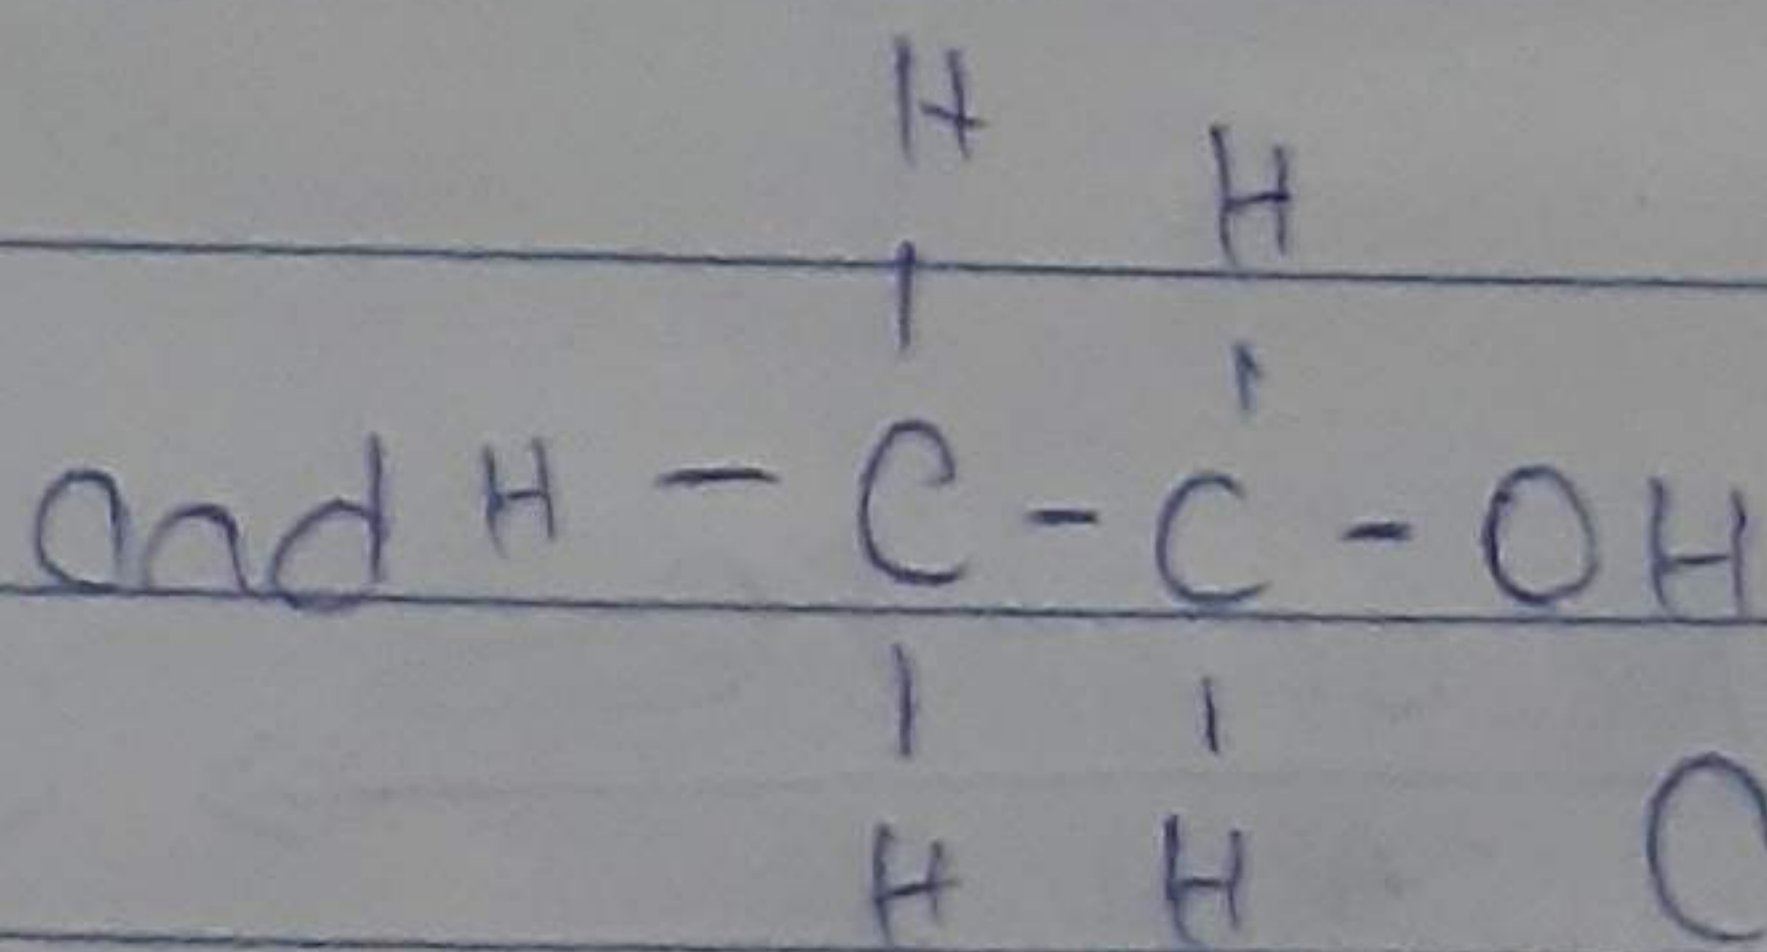 H H
and H - C - C - OH
H H